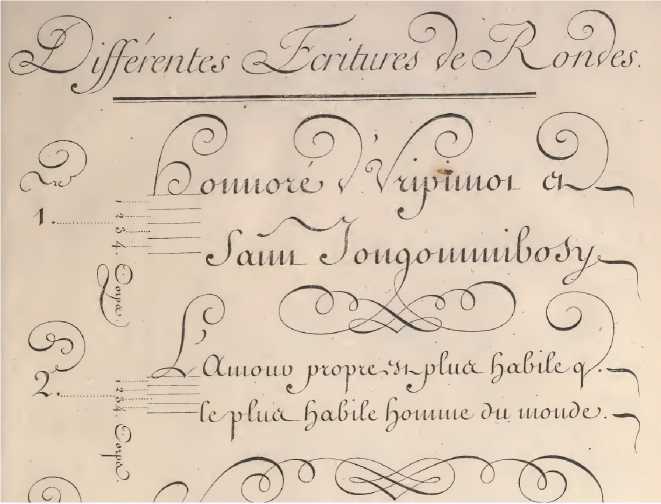 Différentes Ecritures de Rondes.
1.
1 2 3 4. Corps
honnoré et
2.
1 2 3 4. Corps
L'Amour propre est plus habile q.
le plus habile homme du monde.